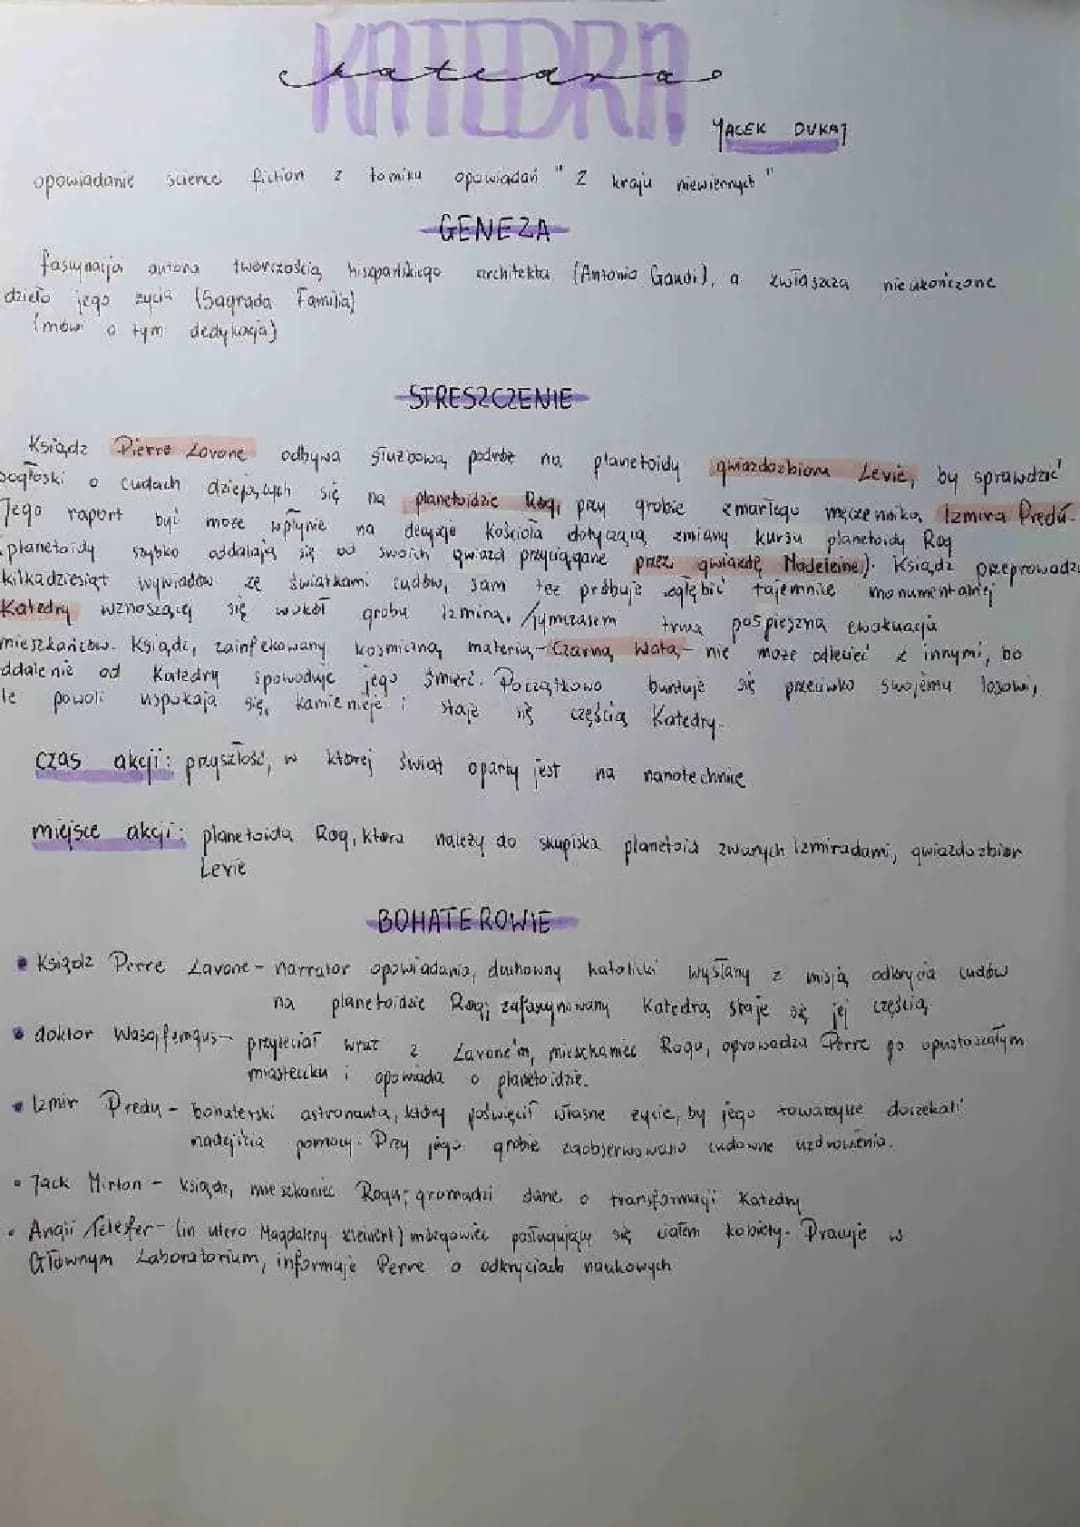 KATEDRA
katedra
JACEK DUKAJ
opowiadanie science fiction z tomiku opowiadań "Z kraju niewiernych"
GENEZA
fascynacja autora twórczością hiszpańskiego architekta (Antonio Gaudi), a zwłaszcza nieukończone
dzieło jego życia (Sagrada Familia)
(mówi o tym dedykacja)
STRESZCZENIE
Ksiądz Pierre Lavone odbywa służbową podróż na planetoidy gwiazdozbioru Levie, by sprawdzać
pogłoski o cudach dziejących się na planetoidzie Rogi przy grobie zmarłego męczennika Izmira Predú.
Jego raport być może wpłynie na decyzje Kościoła dotyczącą zmiany kursu planetoidy Rog
(planetoidy szybko oddalają się od swoich gwiazd przyciągane przez gwiazdę Madeleine). Ksiądz przeprowadza
kilkadziesiąt wywiadów ze świadkami cudów, sam też próbuje zgłębić tajemnice monumentalnej
Katedry wznoszącej się wokół grobu Izmira. Tymczasem trwa pospieszna ewakuacja
mieszkańców. Ksiądz, zainfekowany kosmiczną materią - Czarną Watą - nie może odlecieć z innymi, bo
oddalenie od Katedry spowoduje jego śmierć. Początkowo buntuje się przeciwko swojemu losowi,
ale powoli uspokaja się, kamienieje i staje się częścią Katedry.
czas akcji: przyszłość, w której świat oparty jest na nanotechnice
miejsce akcji: planetoida Rog, która należy do skupiska planetoid zwanych Izmiradami, gwiazdozbiór
Levie
BOHATEROWIE
• Ksiądz Perre Lavone - narrator opowiadania, duchowny katolicki wysłany z misją odkrycia cudów
na planetoidzie Rogi; zafascynowany Katedrą staje się jej częścią
• doktor Wasojfemgus - przyleciał wraz z Lavone'm, mieszkaniec Rogu, oprowadza Perre po opustoszałym
miasteczku i opowiada o planetoidzie.
• Izmir Predu - bohaterski astronauta, który poświęcił własne życie, by jego towarzysze doczekali
nadejścia pomocy. Przy jego grobie zaobserwowano cudowne uzdrowienia.
• Jack Mirton - ksiądz, mieszkaniec Rogu; gromadzi dane o transformacji Katedry
• Angii Telesfer - (in utero Magdaleny Kleinert) mózgowiec posługujący się ciałem kobiety. Pracuje w
Głównym Laboratorium, informuje Perre o odkryciach naukowych